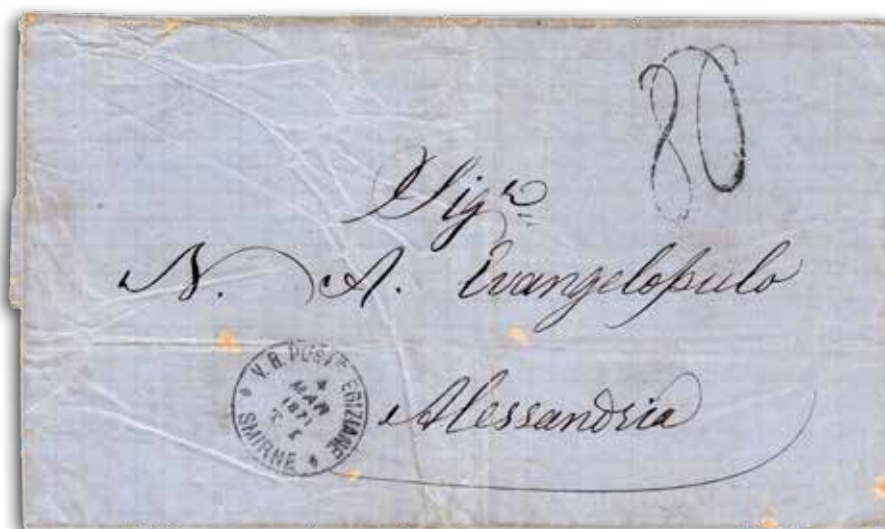 80
Sigr
N. A. Evangelopulo
Alessandria
V. R. POSTE EGIZIANE
4
MAR
1871
T. I
SMIRNE